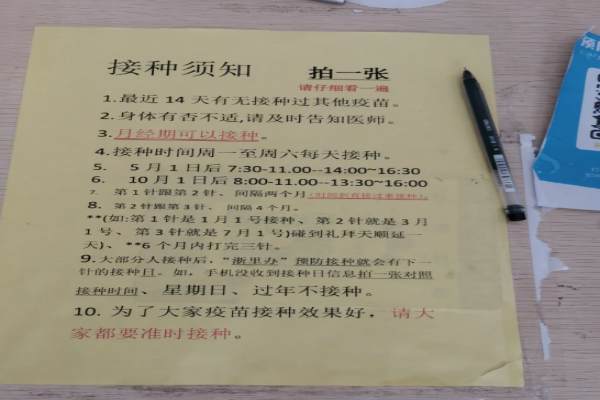 接种须知 拍一张
请仔细看一遍
1.最近 14 天有无接种过其他疫苗。
2.身体有否不适,请及时告知医师。
3.月经期可以接种。
4.接种时间周一至周六每天接种。
5. 5 月 1 日后 7:30-11.00--14:00~16:30
6. 10 月 1 日后 8:00-11.00--13:30~16:00
7. 第 1 针跟第 2 针、间隔两个月(时间到直接过来接种)。
8. 第 2 针跟第 3 针、 间隔 4 个月。
**(如:第 1 针是 1 月 1 号接种、 第 2 针就是 3 月
1 号、 第 3 针就是 7 月 1 号)碰到礼拜天顺延一
天)、 **6 个月内打完三针。
9.大部分人接种后,“浙里办”预防接种就会有下一
针的接种日。如,手机没收到接种日信息拍一张对照
接种时间、星期日、过年不接种。
10. 为了大家疫苗接种效果好,请大
家都要准时接种。